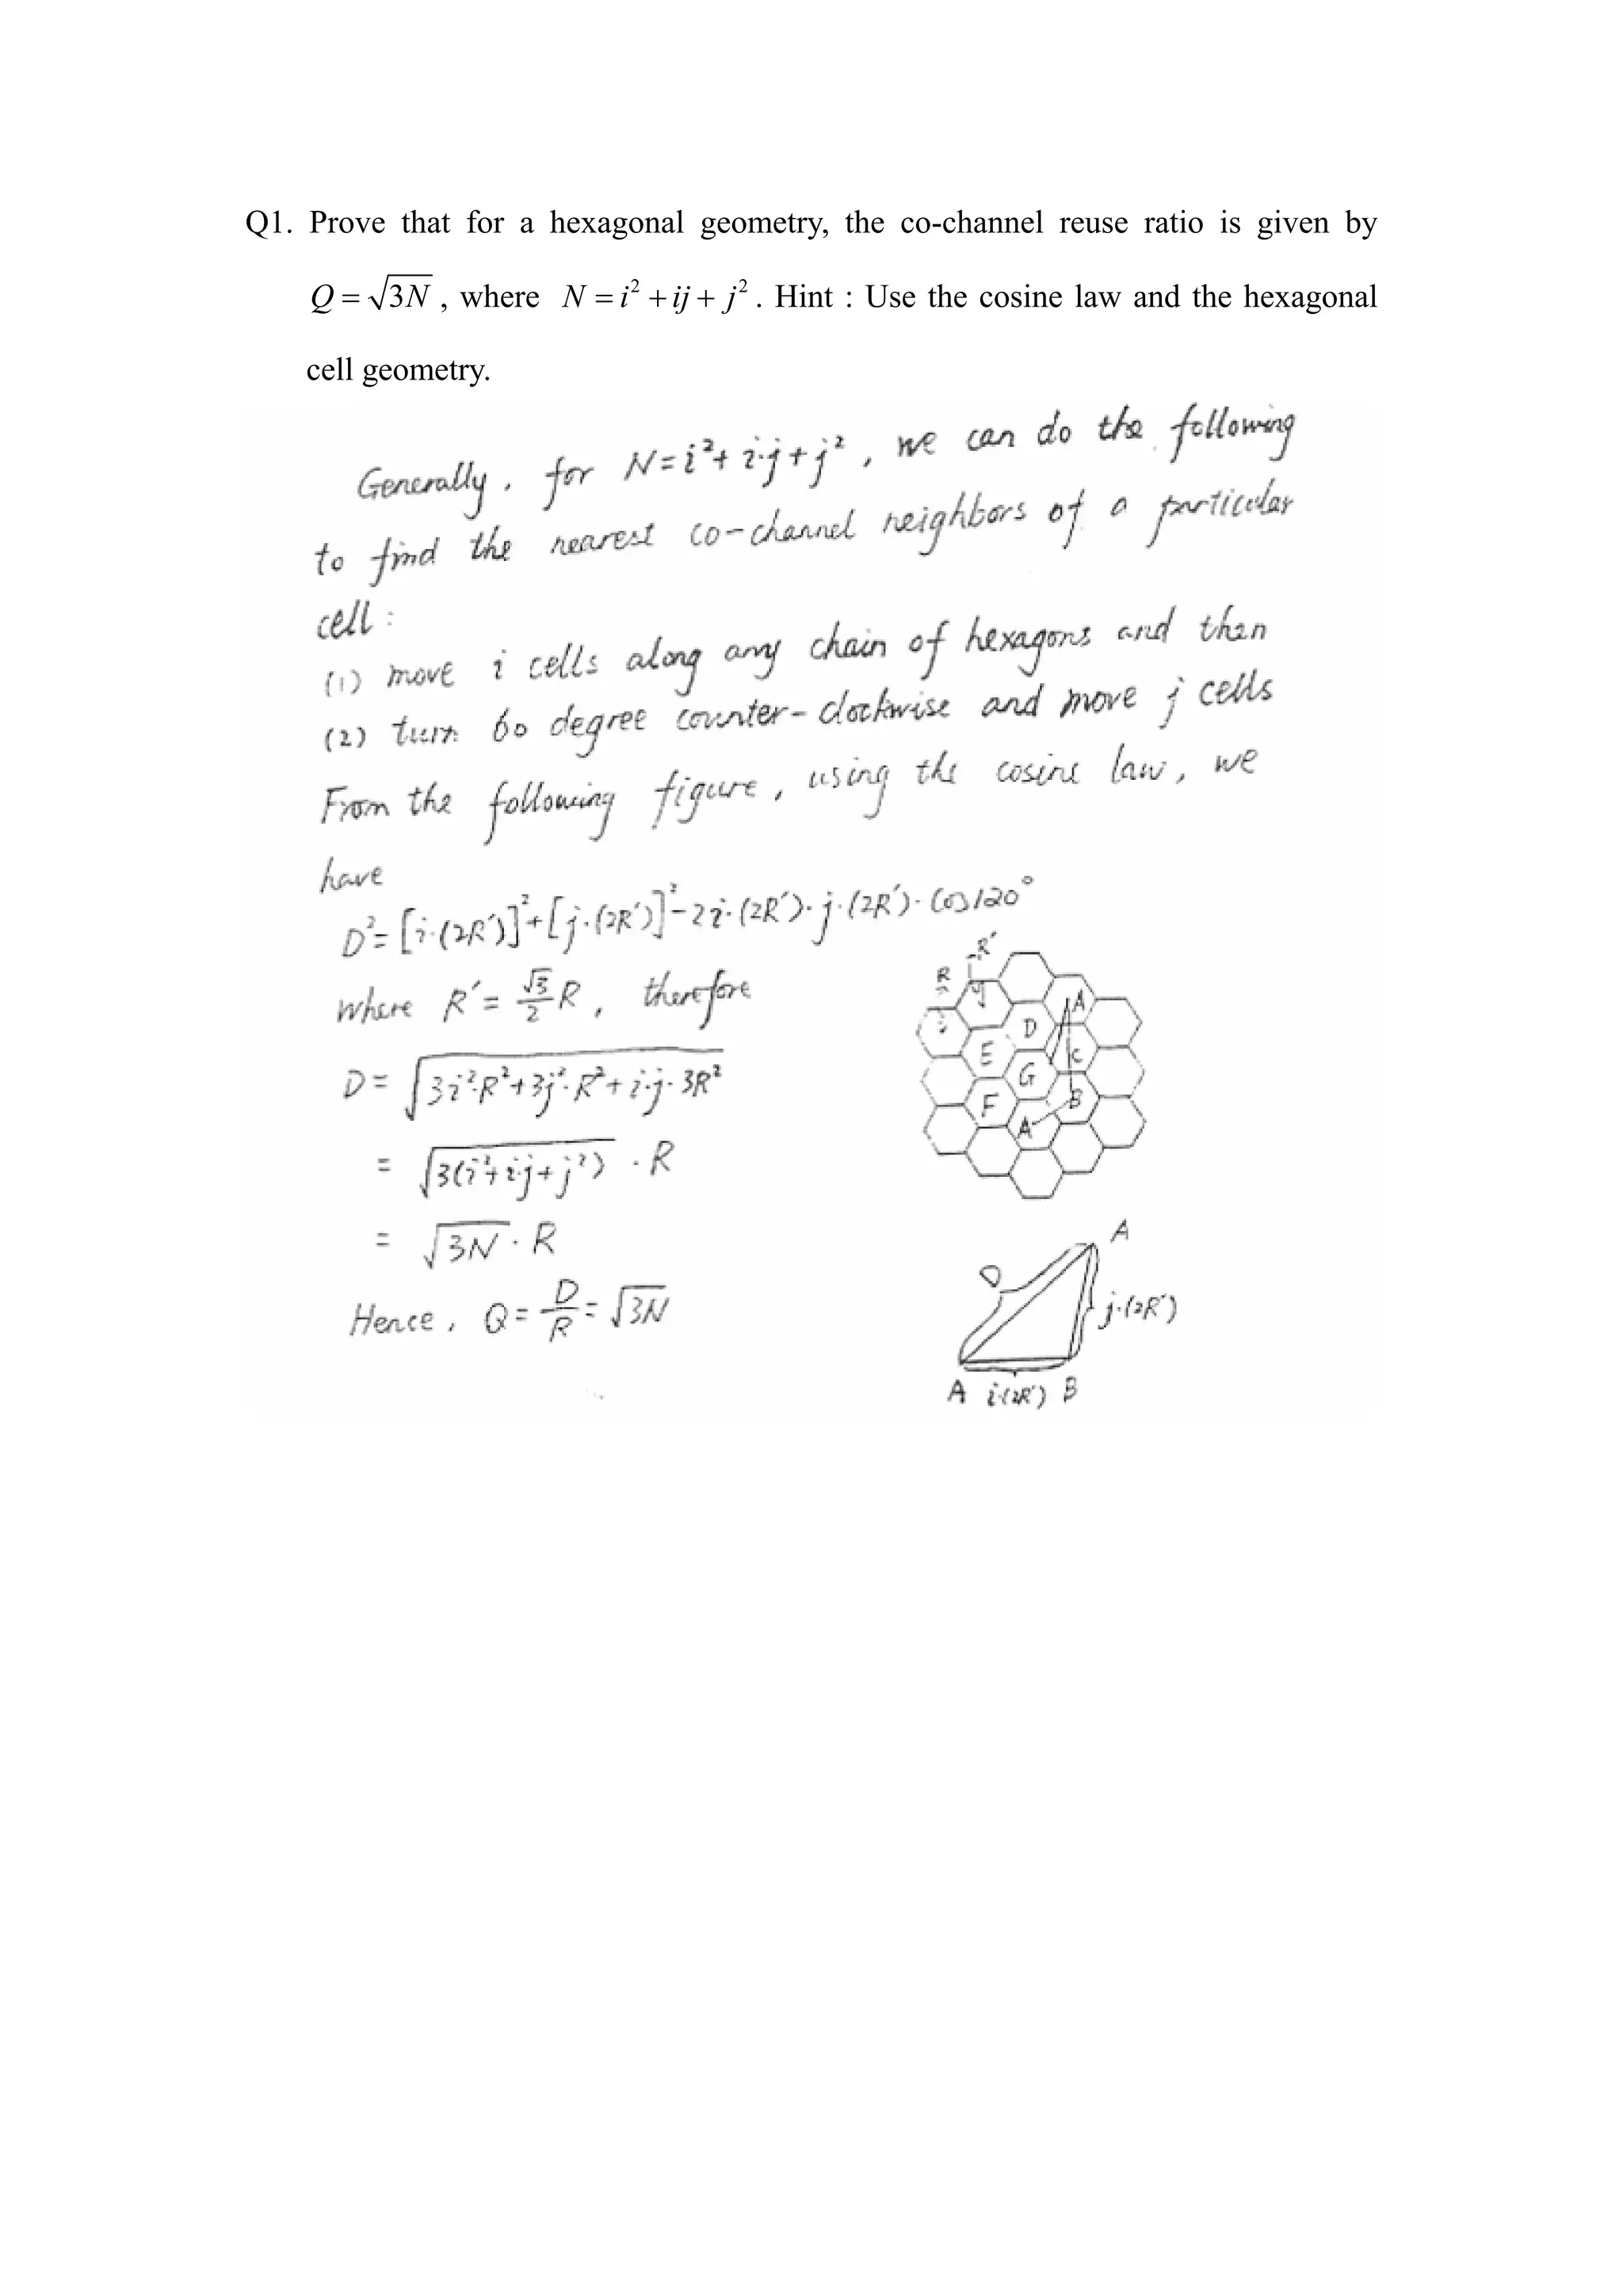 Q1. Prove that for a hexagonal geometry, the co-channel reuse ratio is given by
Q = √3N , where N = i² + ij + j² . Hint : Use the cosine law and the hexagonal
cell geometry.
Generally, for N=i²+i·j+j², we can do the following
to find the nearest co-channel neighbors of a particular
cell:
(1) move i cells along any chain of hexagons and then
(2) turn 60 degree counter-clockwise and move j cells
From the following figure, using the cosine law, we
have
D²=[i·(2R′)]²+[j·(2R′)]²-2i·(2R′)·j·(2R′)·cos120°
where R′= √3/2 R, therefore
D= √(3i²·R²+3j²·R²+i·j·3R²)
= √(3(i²+i·j+j²)) ·R
= √3N · R
Hence, Q= D/R = √3N
R′
R
A
D
E
C
G
B
F
A
A
D
j·(2R′)
A i·(2R′) B